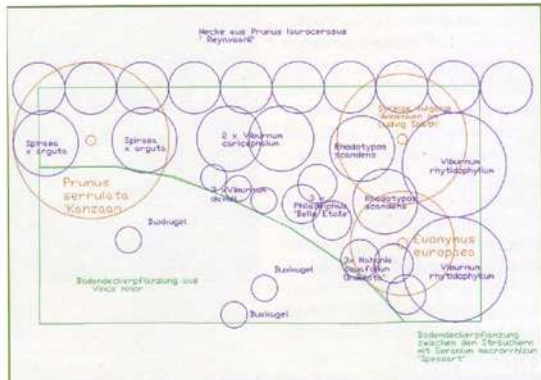 Hecke aus Prunus laurocerasus
Spiraea
x arguta
Spiraea
x arguta
2 x Viburnum
Syringa vulgaris
Ludwig Späth
Rhodotypos
scandens
Viburnum
rhytidophyllum
Prunus
serrulata
'Kanzan'
3 x Viburnum
davidii
3
Philadelphus
'Belle Etoile'
Rhodotypos
scandens
Buxkugel
Euonymus
europaea
3x
Viburnum
rhytidophyllum
Buxkugel
Bodendeckerpflanzung aus
Vinca minor
Buxkugel
Bodendeckerpflanzung
zwischen den Sträuchern
mit Geranium macrorrhizum
'Spessart'